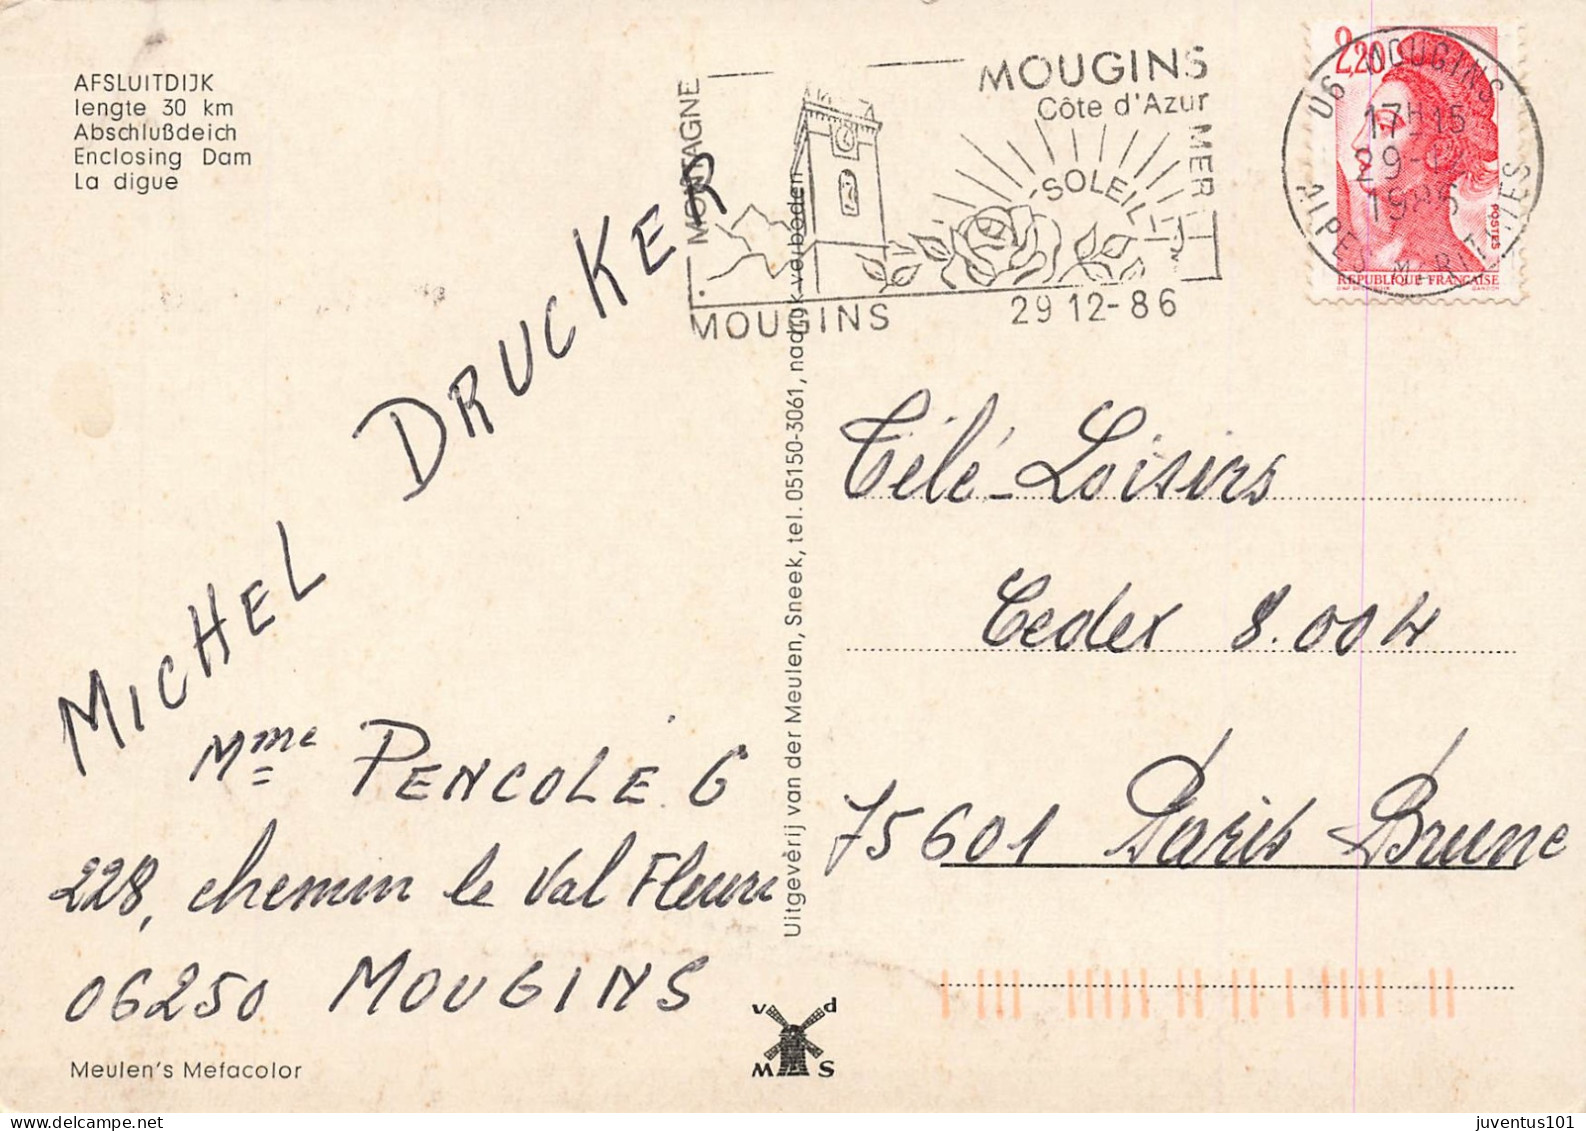 AFSLUITDIJK
lengte 30 km
Abschlußdeich
Enclosing Dam
La digue
MONTAGNE
MOUGINS
Côte d'Azur
MER
SOLEIL
MOUGINS
29 12-86
06 MOUGINS
17H15
29-12
1986
ALPES MARITIMES
2,20
POSTES
REPUBLIQUE FRANÇAISE
MICHEL DRUCKER
Mme PENCOLÉ. G
228, chemin le Val Fleuri
06250 MOUGINS
Uitgeverij van der Meulen, Sneek, tel. 05150-3061, nadruk verboden
Télé-Loisirs
Cedex 8.004
75601 Paris-Brune
Meulen's Mefacolor
v d
M S
juventus101